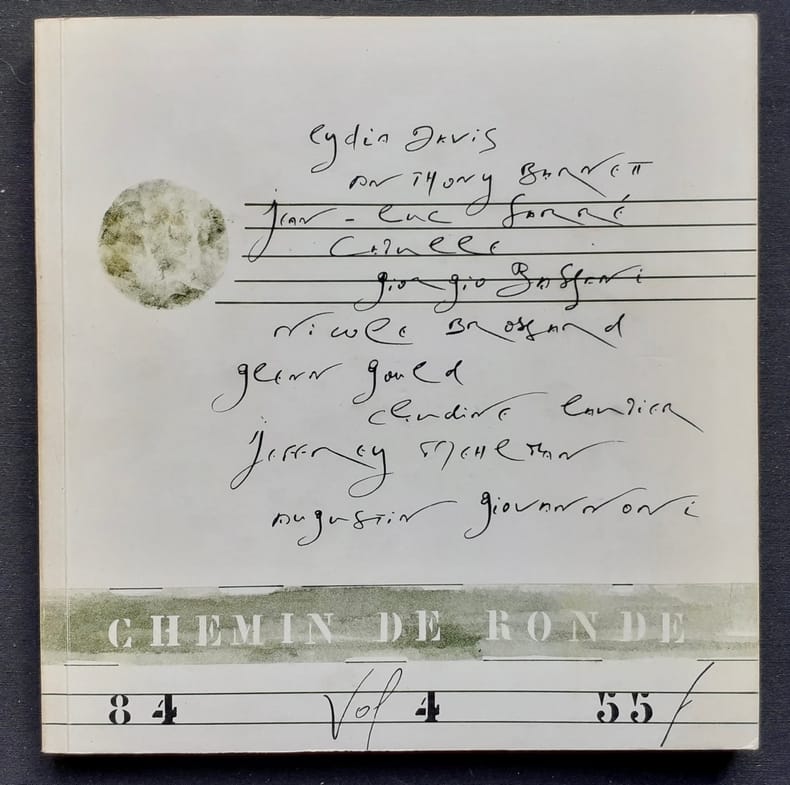 Lydia Davis
Anthony Barnett
Jean-Luc Sarré
Catulle
Giorgio Bassani
Nicole Brossard
Glenn Gould
Claudine Lautier
Jeffrey Mehlman
Augustin Giovannoni
CHEMIN DE RONDE
84 Vol 4 55f